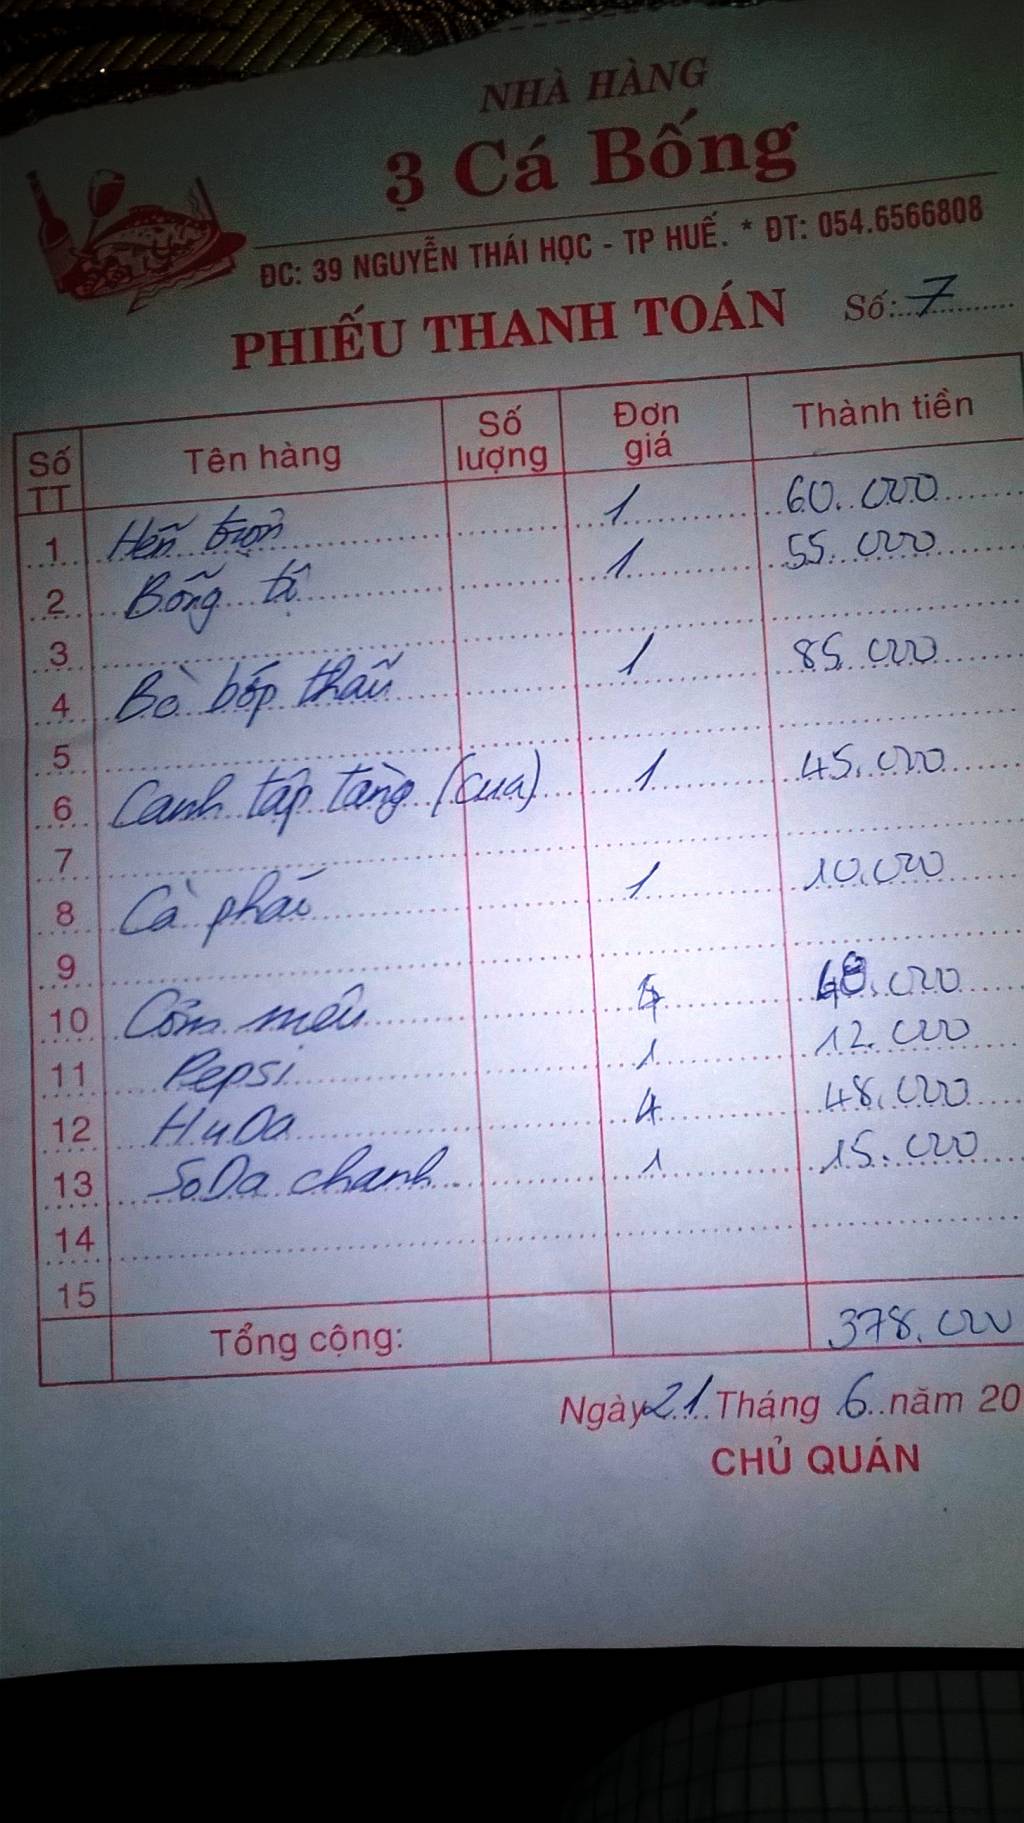 NHÀ HÀNG
3 Cá Bống
ĐC: 39 NGUYỄN THÁI HỌC - TP HUẾ. * ĐT: 054.6566808
PHIẾU THANH TOÁN Số: 7
Số TT Tên hàng Số lượng Đơn giá Thành tiền
1 Hến trộn 1 60.000
2 Bống tộ 1 55.000
3
4 Bò bóp thấu 1 85.000
5
6 Canh tập tàng (cua) 1 45.000
7
8 Cà pháo 1 10.000
9
10 Cơm niêu 4 48.000
11 Pepsi 1 12.000
12 HuDa 4 48.000
13 SoDa chanh 1 15.000
14
15
Tổng cộng: 378.000
Ngày 21 Tháng 6 năm 20
CHỦ QUÁN